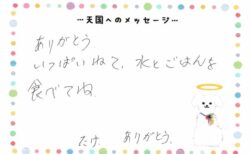 …天国へのメッセージ…
ありがとう
いっぱいねて、水とごはんを
食べてね
たけ、ありがとう。